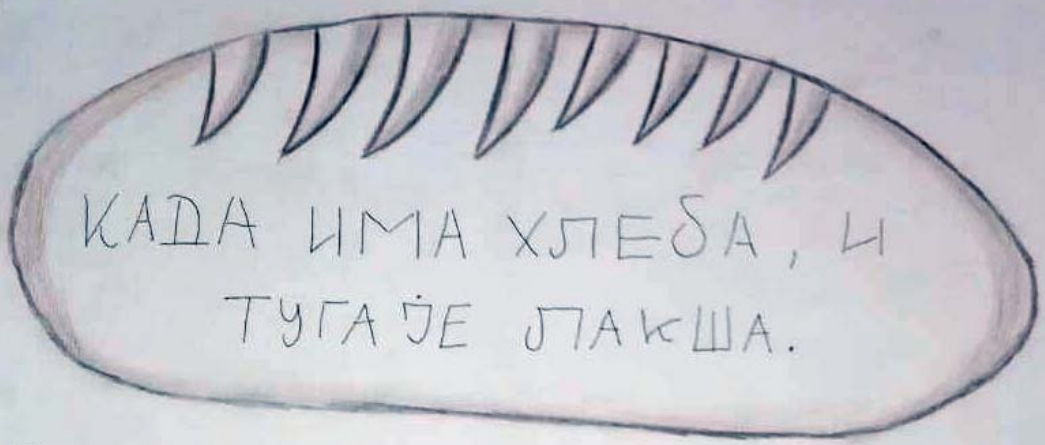 КАДА ИМА ХЛЕБА, И
ТУГА ЈЕ ЛАКША.